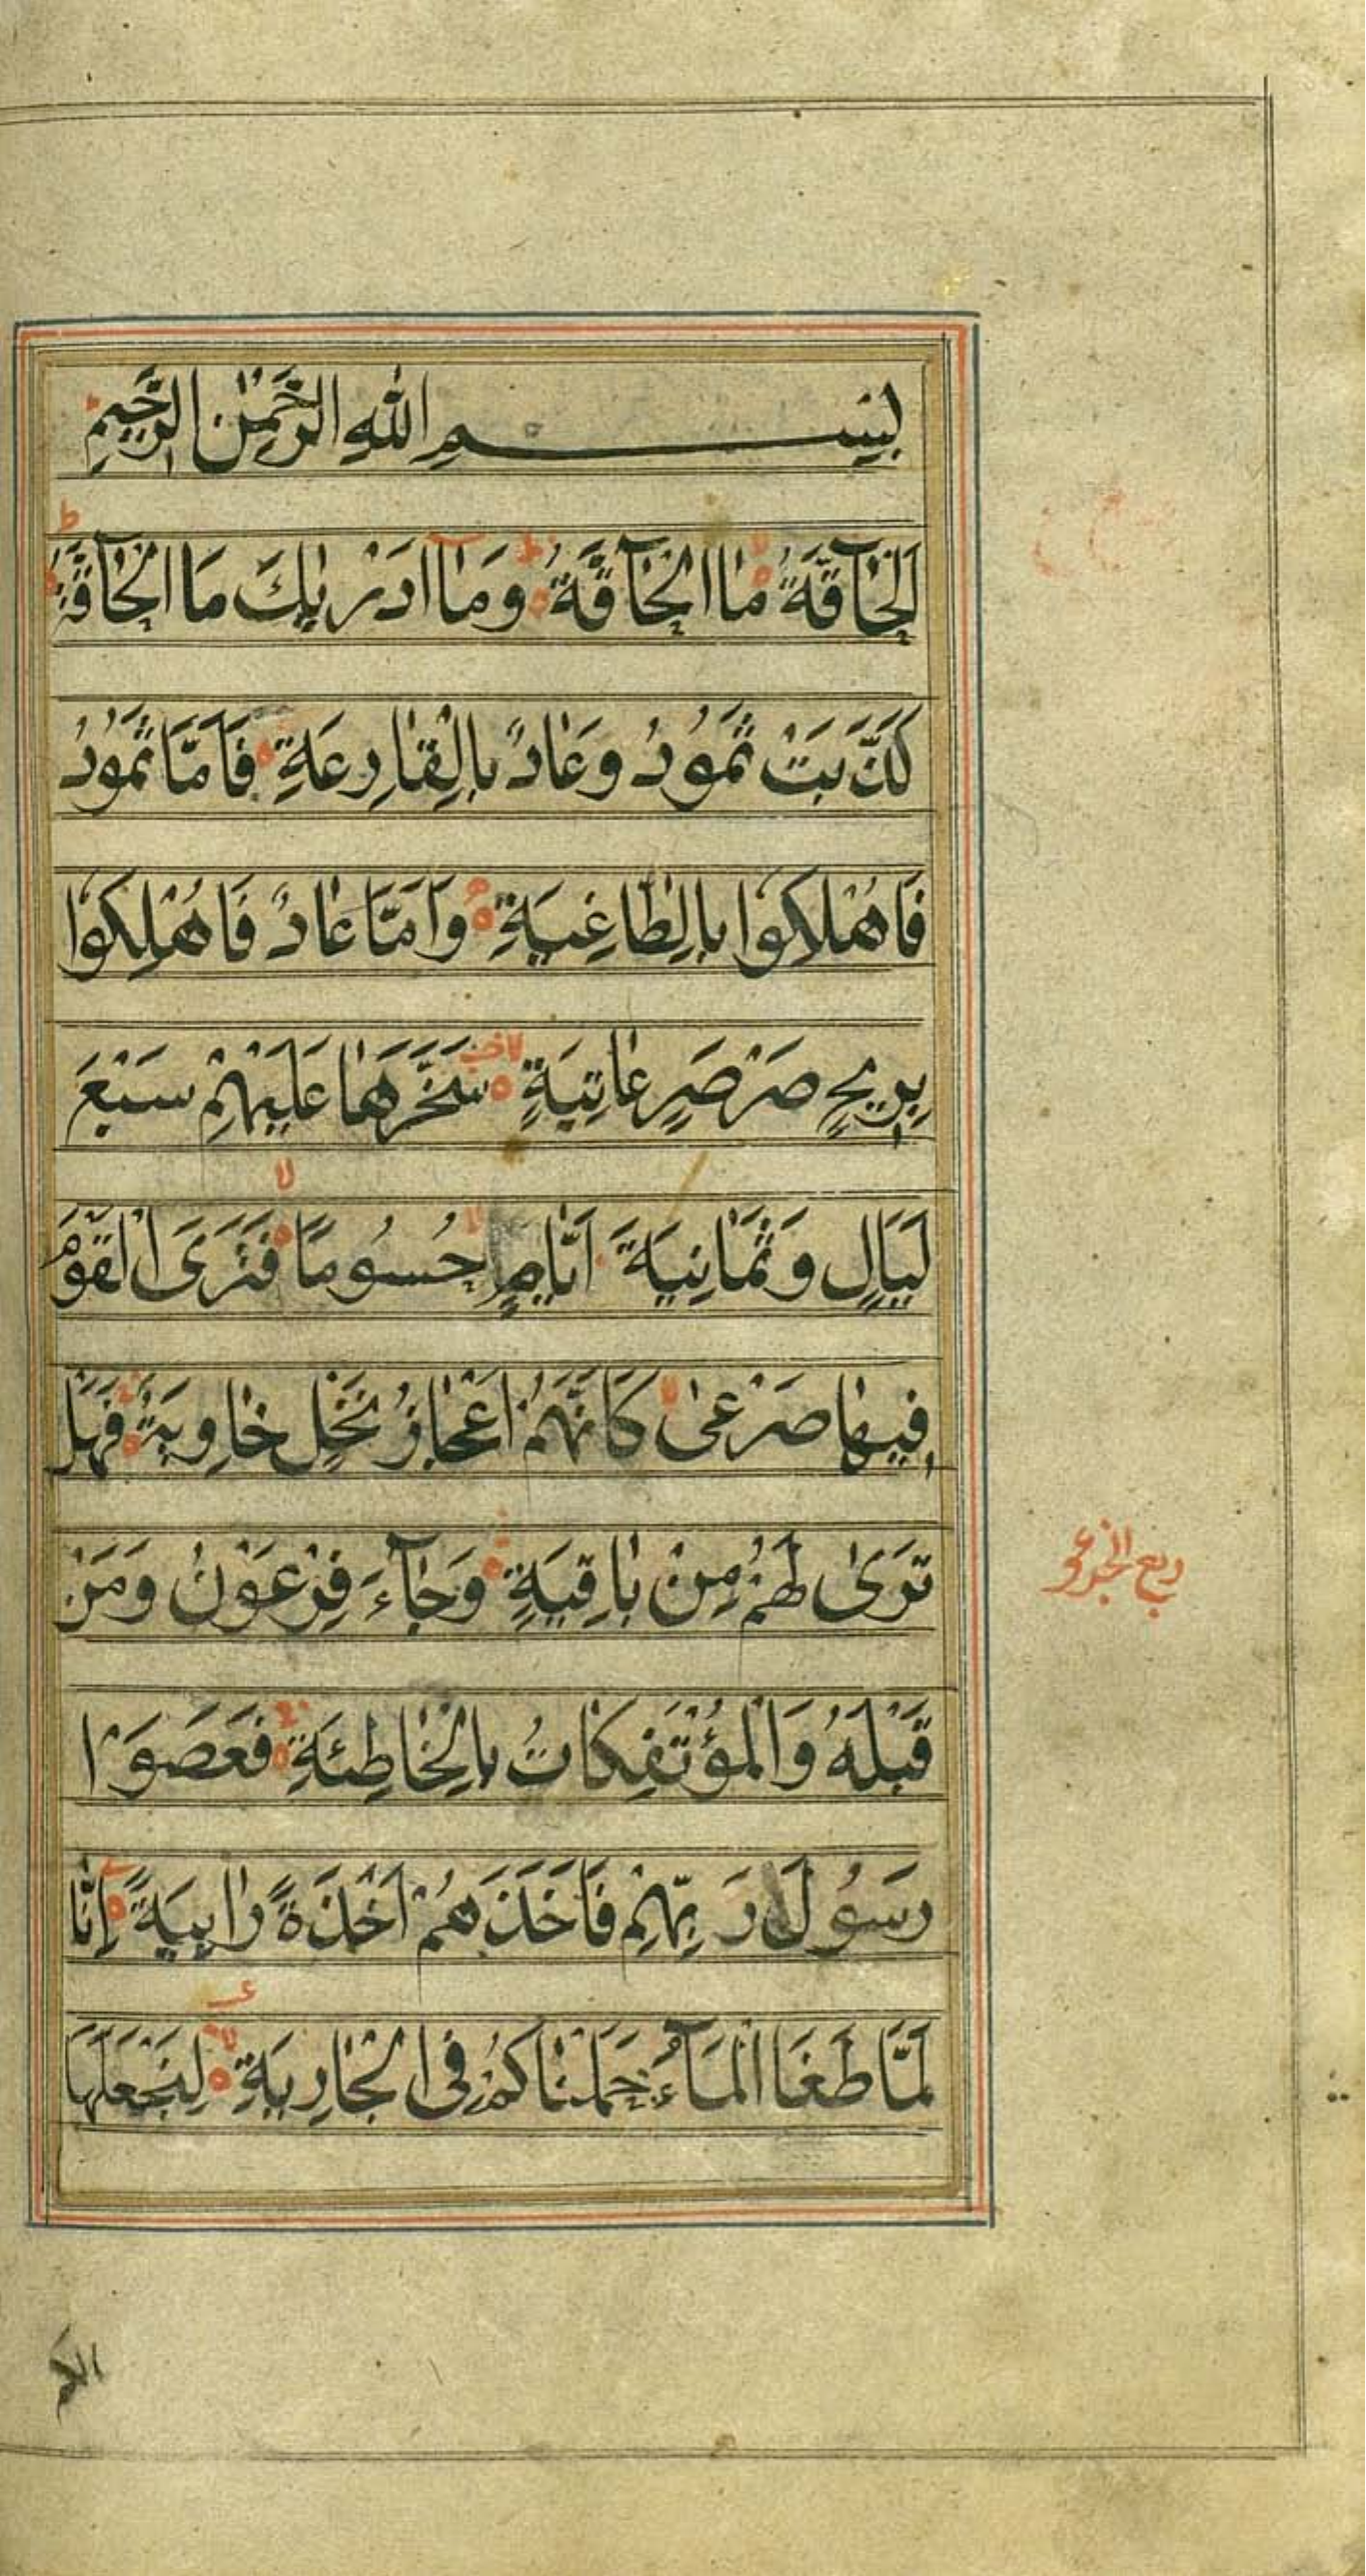 بِسْمِ اللهِ الرَّحْمٰنِ الرَّحِيمِ
اَلْحَآقَّةُ مَا الْحَآقَّةُ وَمَآ اَدْرٰيكَ مَا الْحَآقَّةُ
كَذَّبَتْ ثَمُودُ وَعَادٌ بِالْقَارِعَةِ فَاَمَّا ثَمُودُ
فَاُهْلِكُوا بِالطَّاغِيَةِ وَاَمَّا عَادٌ فَاُهْلِكُوا
بِرِيحٍ صَرْصَرٍ عَاتِيَةٍ سَخَّرَهَا عَلَيْهِمْ سَبْعَ
لَيَالٍ وَثَمَانِيَةَ اَيَّامٍ حُسُومًا فَتَرَى الْقَوْمَ
فِيهَا صَرْعٰى كَاَنَّهُمْ اَعْجَازُ نَخْلٍ خَاوِيَةٍ فَهَلْ
تَرٰى لَهُمْ مِنْ بَاقِيَةٍ وَجَآءَ فِرْعَوْنُ وَمَنْ
قَبْلَهُ وَالْمُؤْتَفِكَاتُ بِالْخَاطِئَةِ فَعَصَوْا
رَسُولَ رَبِّهِمْ فَاَخَذَهُمْ اَخْذَةً رَابِيَةً اِنَّا
لَمَّا طَغَا الْمَآءُ حَمَلْنَاكُمْ فِى الْجَارِيَةِ لِنَجْعَلَهَا